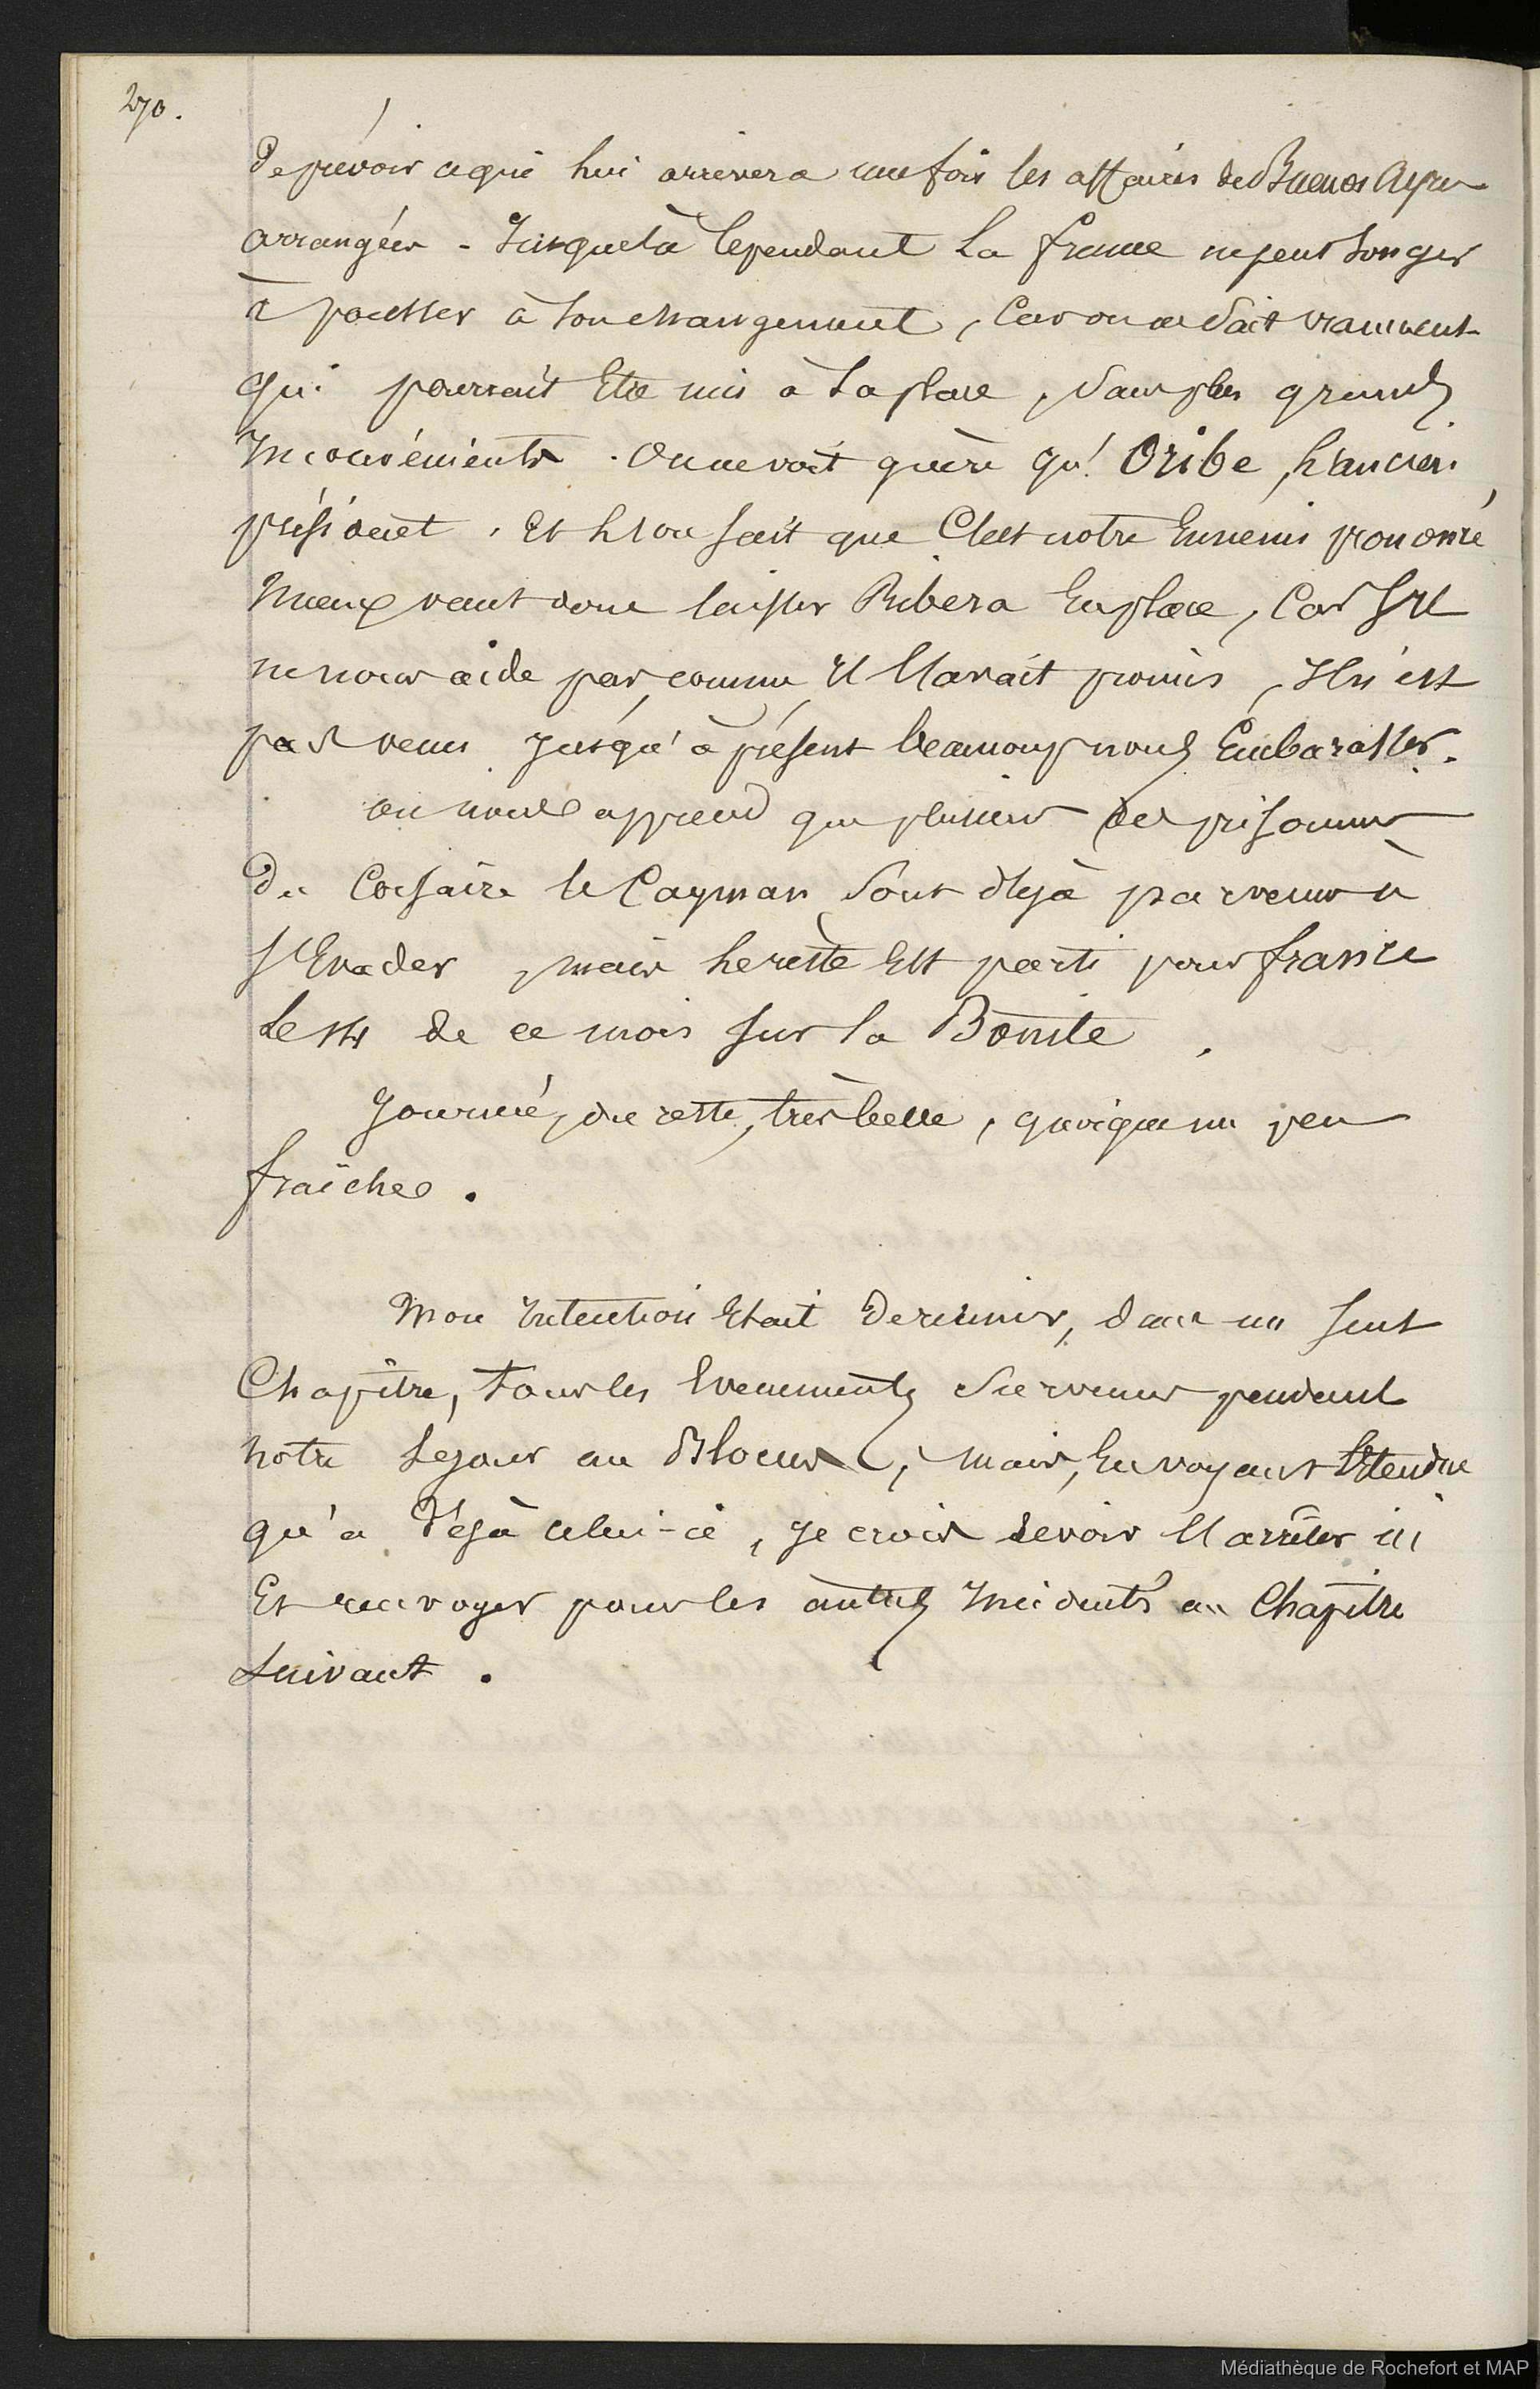 270.
de prévoir ce qui lui arrivera une fois les affaires de Buenos Ayres
arrangées - Jusque là cependant la france ne peut songer
à pousser à son changement, car on ne sait vraiment
qui pourrait Etre mis à sa place, sans plus grands
Inconvénients. On ne voit guère qu'Oribe, l'ancien
président, Et l'on sait que C'est notre Ennemi prononcé,
Mieux vaut donc laisser Ribera En place, Car s'Il
ne nous aide pas, comme Il l'avait promis, Il n'est
pas venu jusqu'à présent beaucoup nous Embarasser.
on nous apprend que plusieurs des prisonniers
du Corsaire le Cayman sont déjà parvenus à
s'Evader, mais le reste Est parti pour france
le 14 de ce mois sur la Bonite.
Journée, du reste, très belle, quoique un peu
fraîche.
Mon Intention Etait de réunir, dans un seul
Chapitre, tous les Evenements survenus pendant
notre Sejour au Blocus, mais, En voyant l'Etendue
qu'a déjà celui-ci, je crois devoir l'arrêter ici
Et renvoyer pour les autres Incidents au Chapitre
suivant.
Médiathèque de Rochefort et MAP